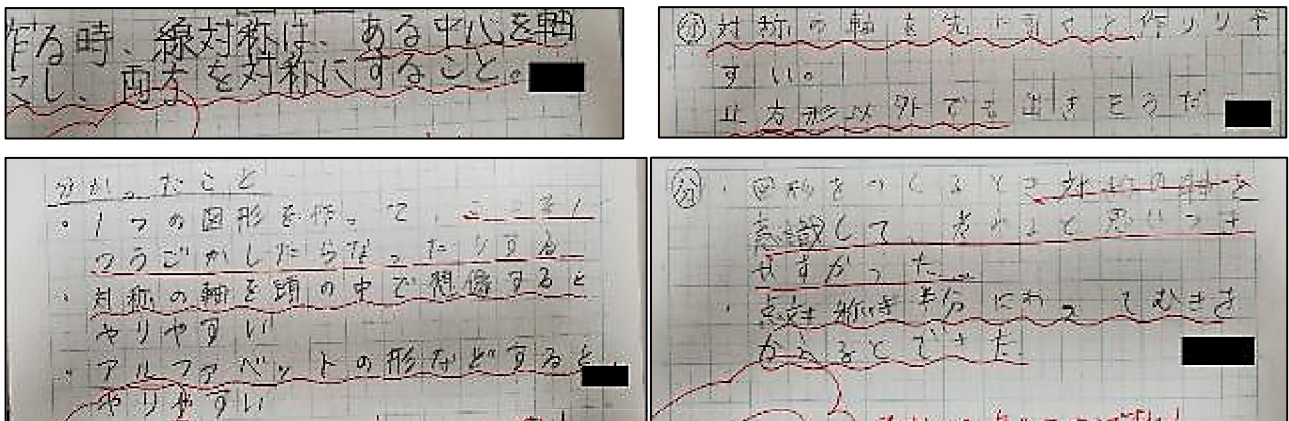 作る時、線対称は、ある中心を軸
にし、両左を対称にすること。
分 対称の軸を先に 作りりや
すい。
正方形以外でも出きそうだ
分かったこと
・1つの図形を作って、
つうごかしたらな ったりする
・対称の軸を頭の中で想像すると
やりやすい
・アルファベットの形などすると
やりやすい
分 ・図形をつくるとき対称の軸を
意識して、考えると思いつき
やすかった。
・点対称は半分にわってむきを
かえるとできた